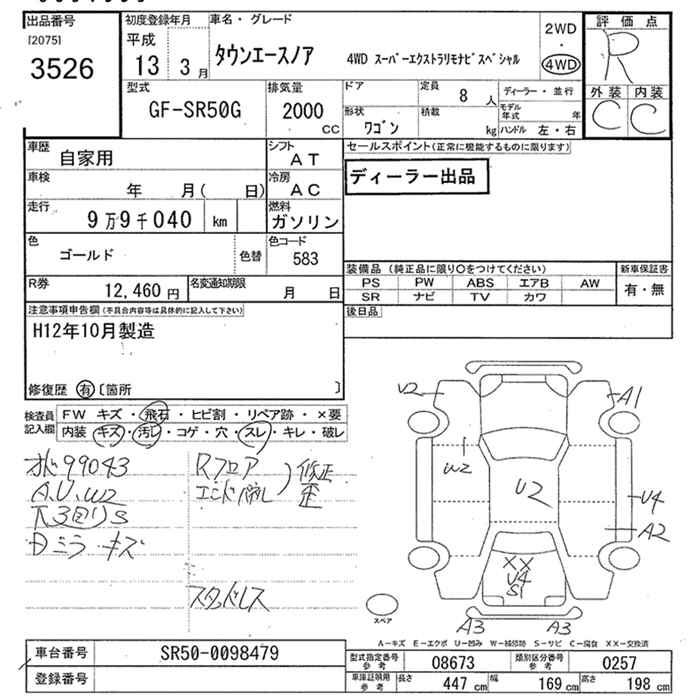 出品番号 初度登録年月 車名・グレード 2WD ・ 4WD 評価点
[2075] 平成
3526 13 3月 タウンエースノア 4WD スーパーエクストラリモナビスペシャル R
型式 排気量 ドア 定員 8 人 ディーラー・並行 外装 内装
GF-SR50G 2000 cc 形状 ワゴン 積載 kg モデル年式 年 C C
ハンドル 左・右
車歴 自家用 シフト AT セールスポイント(正常に機能するものに限ります)
車検 年 月( 日) 冷房 AC ディーラー出品
走行 9万9千040 km 燃料 ガソリン
色 ゴールド 色替 色コード 583
装備品 (純正品に限り○をつけてください) 新車保証書
R券 12,460円 名変通知期限 月 日 PS PW ABS エアB AW 有・無
SR ナビ TV カワ
注意事項申告欄(不具合内容等は具体的に記入して下さい) 後日品
H12年10月製造
修復歴 有 [箇所 ]
検査員記入欄 FW キズ・飛石・ヒビ割・リペア跡・×要
内装 キズ・汚レ・コゲ・穴・スレ・キレ・破レ
99043 Rフロア 修正
A.U.W2 歪
Dミラーキズ
U2 A1
W2 U2 U4
A2
XX
U4
S1
スペア A3 A3
A-キズ E-エクボ U-凹み W-補修跡 S-サビ C-腐食 XX-交換済
車台番号 SR50-0098479 型式指定番号 参考 08673 類別区分番号 参考 0257
登録番号 車庫証明用 参考 長さ 447 cm 幅 169 cm 高さ 198 cm